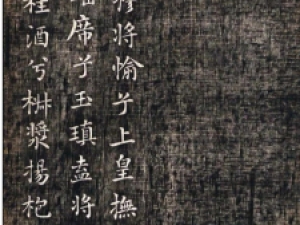 穆將愉兮上皇撫
瑤席兮玉瑱盍將
桂酒兮椒漿揚枹